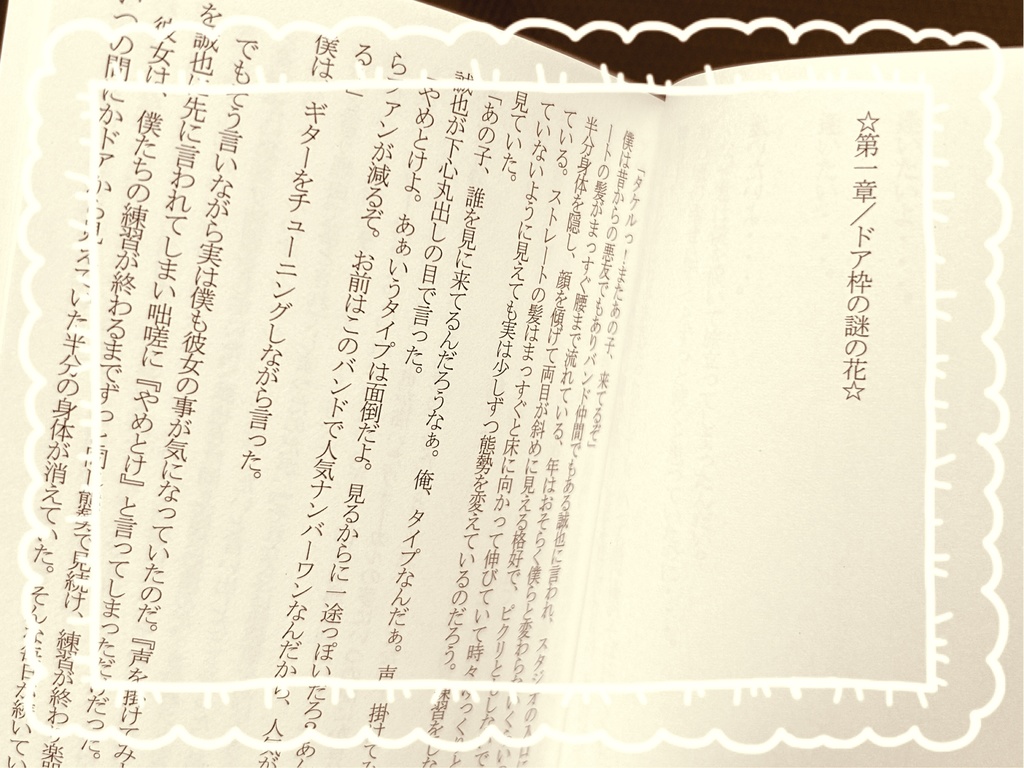 ☆第一章／ドア枠の謎の花☆
「タケルっ！またあの子、来てるぞ」
僕は昔からの悪友でもありバンド仲間でもある誠也に言われ、スタジオの入口に
ートの髪がまっすぐ腰まで流れている、年はおそらく僕らと変わらな
半分身体を隠し、顔を傾けて両目が斜めに見える格好で、ピクリと
ている。ストレートの髪はまっすぐと床に向かって伸びていて時々
ていないように見えても実は少しずつ態勢を変えているのだろう。
見ていた。
「あの子、誰を見に来てるんだろうなぁ。俺、タイプなんだぁ。声
誠也が下心丸出しの目で言った。
「やめとけよ。ああいうタイプは面倒だよ。見るからに一途っぽいだろ？あん
らファンが減るぞ。お前はこのバンドで人気ナンバーワンなんだから、人気が
る」
僕は、ギターをチューニングしながら言った。
でもそう言いながら実は僕も彼女の事が気になっていたのだ。『声を掛けてみ
を誠也に先に言われてしまい咄嗟に『やめとけ』と言ってしまっただけだった。
彼女は、僕たちの練習が終わるまでずっと同じ態勢で見続け、練習が終わり楽器
いつの間にかドアから見えていた半分の身体が消えていた。そんな毎日が続いてい